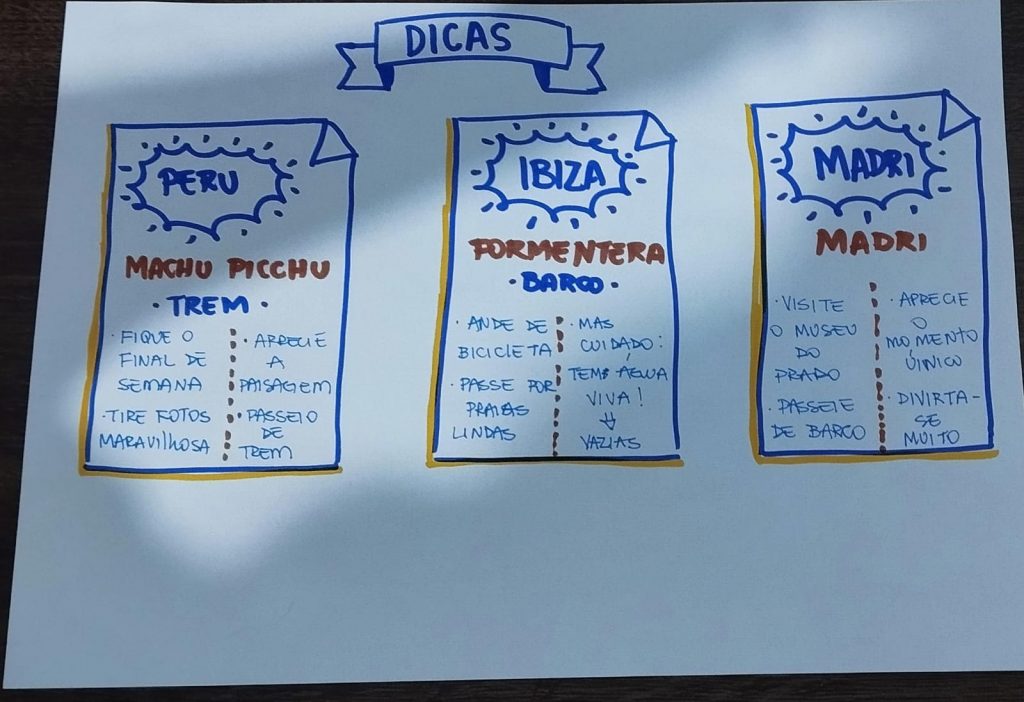 DICAS
PERU
MACHU PICCHU
· TREM ·
· FIQUE O
FINAL DE
SEMANA
· TIRE FOTOS
MARAVILHOSA
· APRECIE
A
PAISAGEM
· PASSEIO
DE
TREM
IBIZA
FORMENTERA
· BARCO ·
· ANDE DE
BICICLETA
· PASSE POR
PRAIAS
LINDAS
· MAS
CUIDADO:
TEM ÁGUA
VIVA!
⇓
VAZIAS
MADRI
MADRI
· VISITE
O MUSEU
DO
PRADO
· PASSEIE
DE BARCO
· APRECIE
O
MOMENTO
ÚINICO
· DIVIRTA-
SE
MUITO